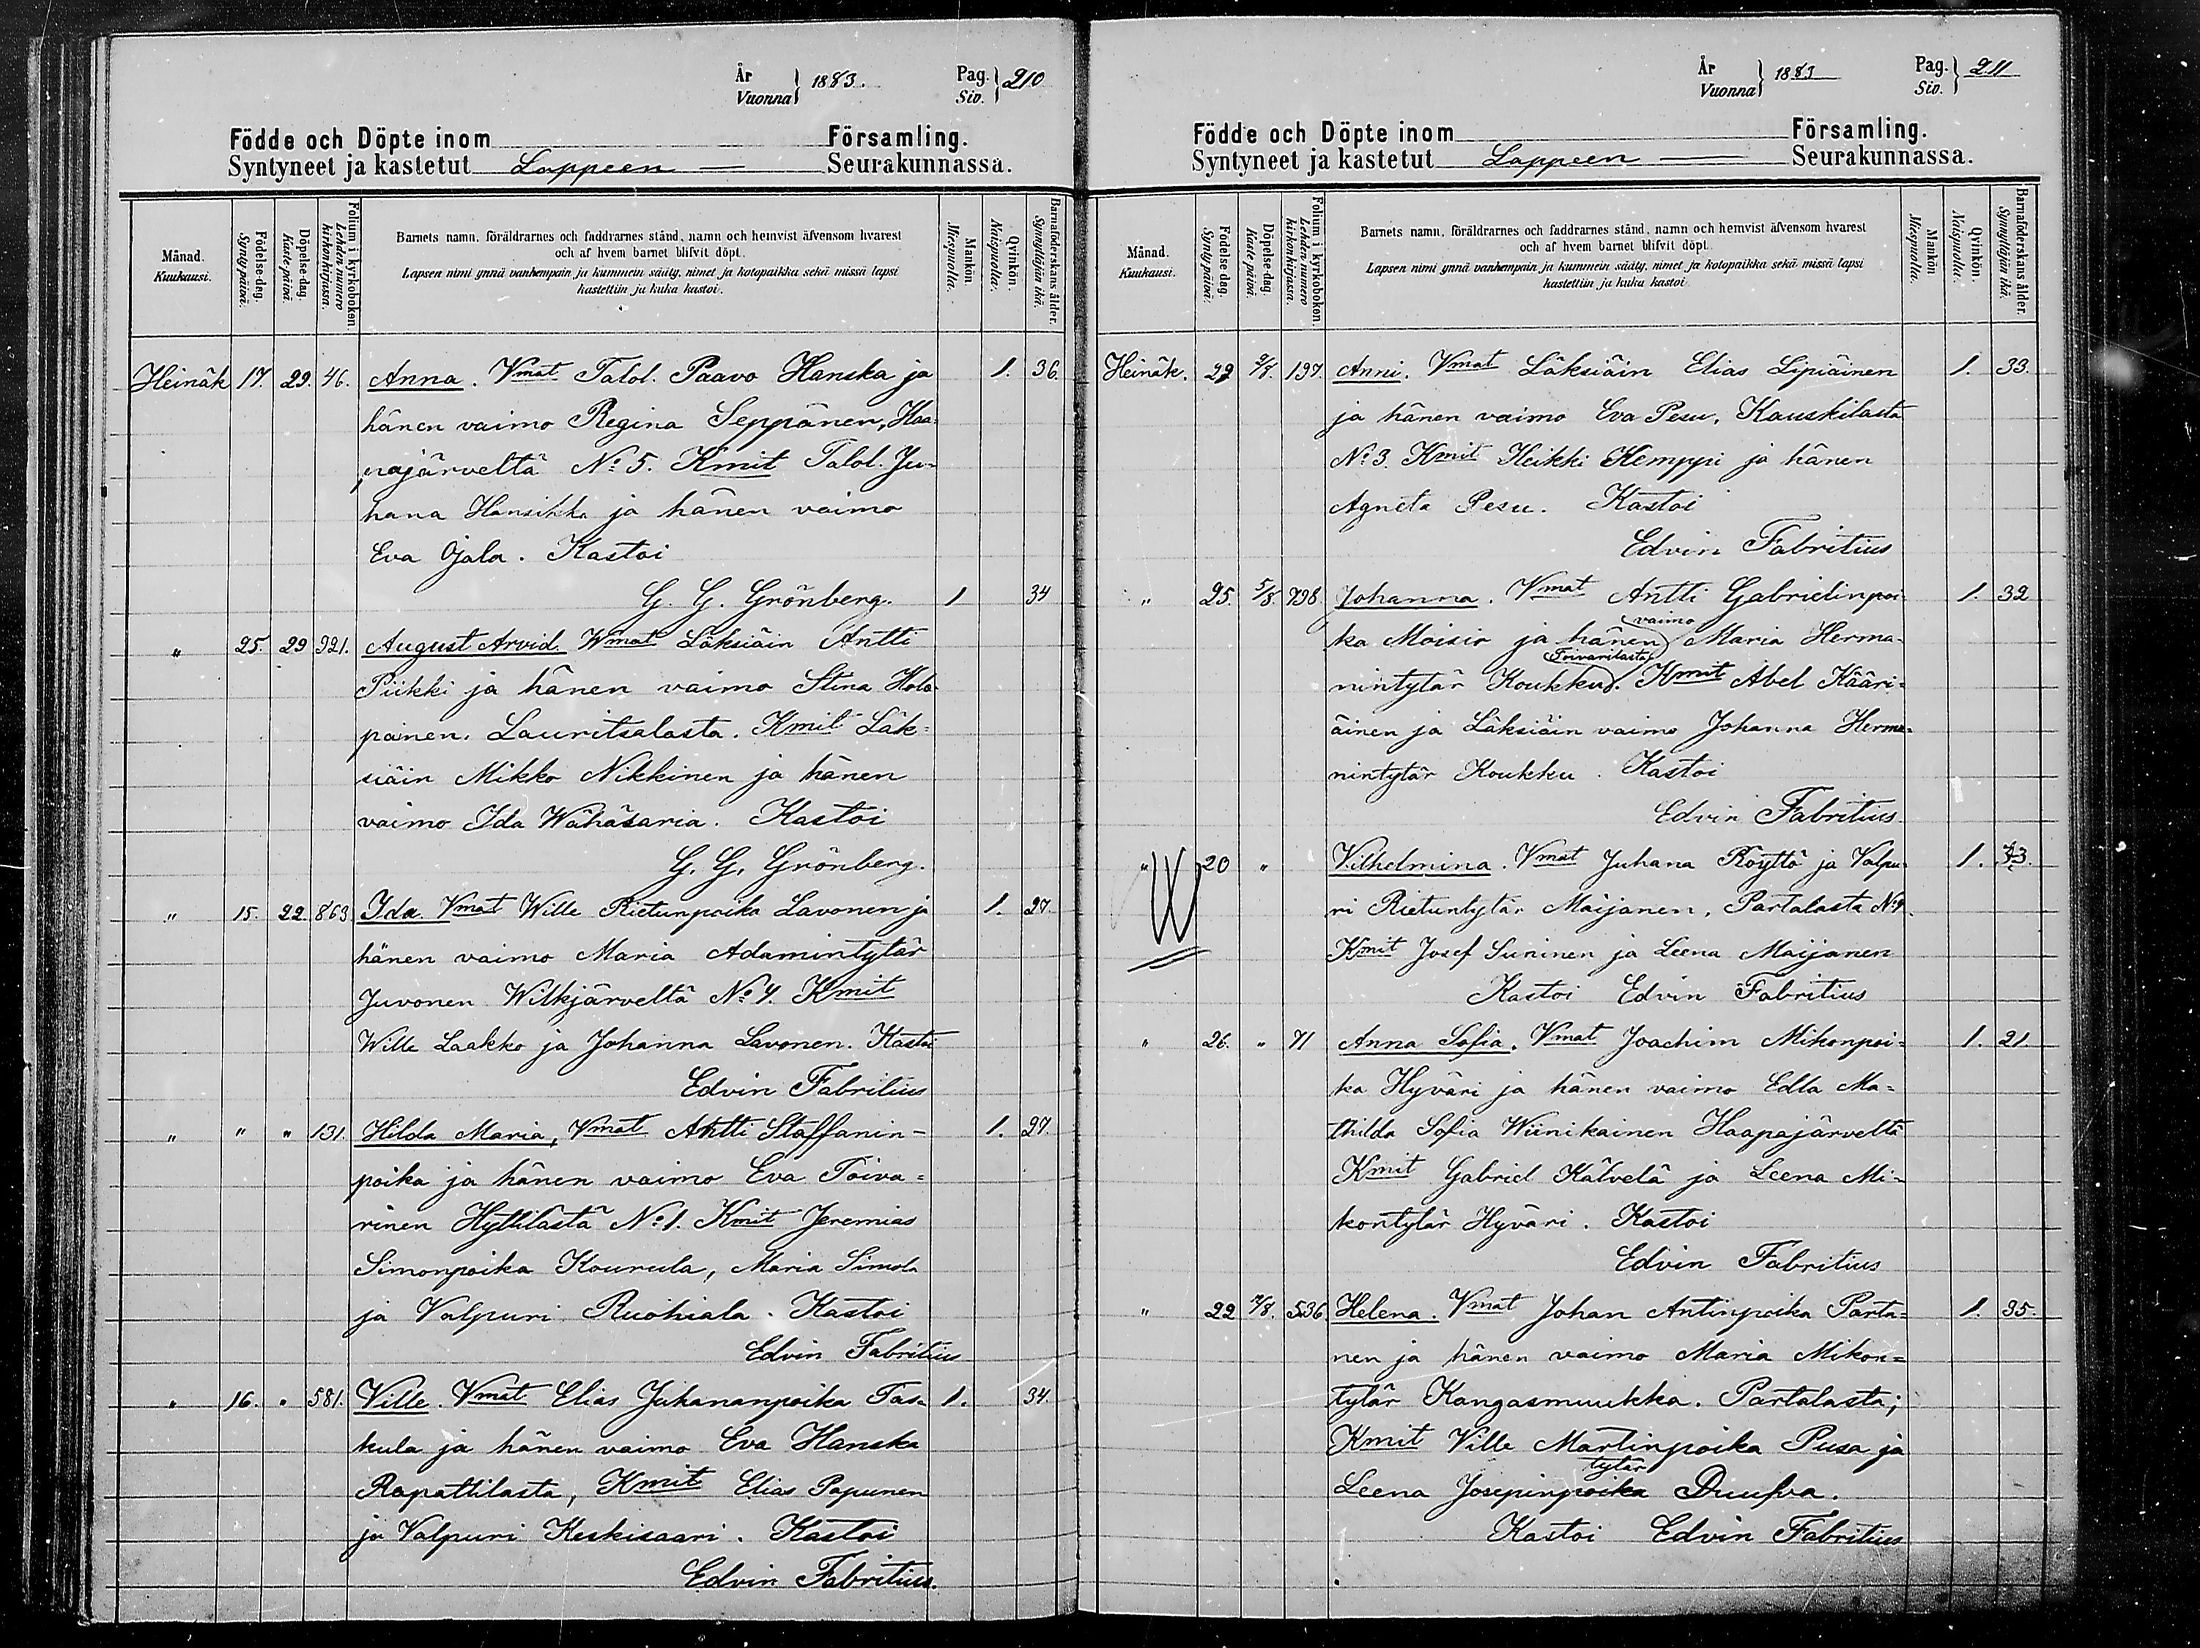 År
Vuonna } 1883.
Pag.
Siv. } 210
Födde och Döpte inom Församling.
Syntyneet ja kastetut Lappeen Seurakunnassa.
Månad.
Kuukausi.
Födelse-dag.
Synty päivä.
Döpelse-dag.
Kaste päivä.
Folium i kyrkoboken.
Lehden numero
kirkonkirjassa.
Barnets namn, föräldrarnes och faddrarnes stånd, namn och hemvist äfvensom hvarest
och af hvem barnet blifvit döpt.
Lapsen nimi ynnä vanhempain ja kummein sääty, nimet ja kotopaikka sekä missä lapsi
kastettiin ja kuka kastoi.
Mankön.
Miespuolta.
Qvinkön.
Naispuolta.
Barnaföderskans ålder.
Synnyttäjän ikä.
Heinäk 17. 29. 46. Anna. Vmat Talol. Paavo Hanska ja 1. 36.
hänen vaimo Regina Seppänen, Haa-
pajärveltä No 5. Kmit Talol. Ju-
hana Hansikka ja hänen vaimo
Eva Ojala. Kastoi
G. G. Grönberg. 1 34
" 25. 29 321. August Arvid. Wmat Läksiäin Antti
Piikki ja hänen vaimo Stina Hola-
painen. Lauritsalasta. Kmit Läk-
siäin Mikko Nikkinen ja hänen
vaimo Ida Wähäsaria. Kastoi
G. G. Grönberg.
" 15. 22. 863 Ida. Vmat Wille Rietunpoika Lavonen ja 1. 27.
hänen vaimo Maria Adamintytär
Juvonen Wilkjärveltä No 4. Kmit
Wille Laakko ja Johanna Lavonen. Kastoi
Edvin Fabritius
" " " 131. Hilda Maria, Vmat Antti Staffanin- 1. 27.
poika ja hänen vaimo Eva Toiva=
rinen Hyttilästä No 1. Kmit Jeremias
Simonpoika Kourula, Maria Simola
ja Valpuri Ruohiala. Kastoi
Edvin Fabritius
" 16. " 581. Ville. Vmat Elias Juhananpoika Tas- 1. 34.
kula ja hänen vaimo Eva Hanska
Rapattilasta, Kmit Elias Papunen
ja Valpuri Keskisaari. Kastoi
Edvin Fabritius.
År
Vuonna } 1883
Pag.
Siv. } 211
Födde och Döpte inom Församling.
Syntyneet ja kastetut Lappeen Seurakunnassa.
Månad.
Kuukausi.
Födelse dag.
Synty päivä.
Döpelse-dag.
Kaste päivä.
Folium i kyrkoboken.
Lehden numero
kirkonkirjassa.
Barnets namn, föräldrarnes och faddrarnes stånd, namn och hemvist äfvensom hvarest
och af hvem barnet blifvit döpt.
Lapsen nimi ynnä vanhempain ja kummein sääty, nimet ja kotopaikka sekä missä lapsi
kastettiin ja kuka kastoi.
Mankön
Miespuolta.
Qvinkön.
Naispuolta.
Barnaföderskans ålder.
Synnyttäjän ikä.
Heinäk. 22 2/8. 197. Anni. Vmat Läksiäin Elias Lipiäinen 1. 33.
ja hänen vaimo Eva Pesu, Kauskilasta
No 3. Kmit Heikki Kemppi ja hänen
Agneta Pesu. Kastoi
Edvin Fabritius
" 25. 5/8. 798. Johanna. Vmat Antti Gabrielinpoi- 1. 32
vaimo
ka Moisio ja hänen Maria Herma-
Toivarilasta
nintytär Koukku. Kmit Abel Kääri=
äinen ja Läksiäin vaimo Johanna Herma-
nintytär Koukku. Kastoi
Edvin Fabritius
" 20 " Vilhelmina. Vmat Juhana Röyttö ja Valpu- 1. 43.
ri Rietuntytär Maijanen, Partalasta No 9.
Kmit Josef Suninen ja Leena Maijanen
Kastoi Edvin Fabritius
" 26. " 71 Anna Sofia. Vmat Joachim Mikonpoi= 1. 21.
ka Hyväri ja hänen vaimo Edla Ma=
thilda Sofia Wiinikainen Haapajärveltä
Kmit Gabriel Kälvelä ja Leena Mi-
kontytär Hyväri. Kastoi
Edvin Fabritius
" 22 7/8. 536 Helena. Vmat Johan Antinpoika Parta= 1. 35.
nen ja hänen vaimo Maria Mikon=
tytär Kangasmuukka. Partalasta;
Kmit Ville Martinpoika Pusa ja
tytär
Leena Josepinpoika Duufva.
Kastoi Edvin Fabritius